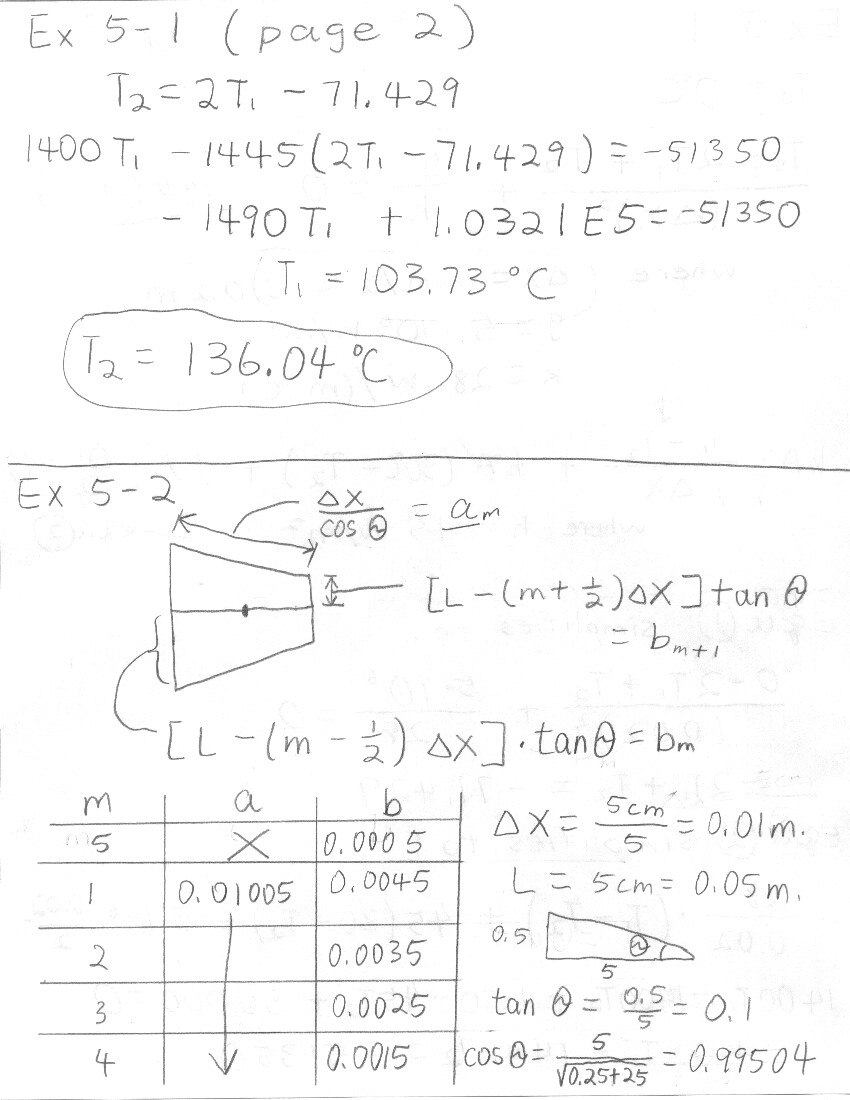 Ex 5-1 (page 2)
T₂ = 2T₁ - 71.429
1400 T₁ - 1445(2T₁ - 71.429) = -51350
- 1490 T₁ + 1.0321E5 = -51350
T₁ = 103.73 °C
T₂ = 136.04 °C
Ex 5-2
ΔX / cos θ = aₘ
[L - (m + 1/2) ΔX] tan θ
= bₘ₊₁
[L - (m - 1/2) ΔX] · tan θ = bₘ
m a b
5 X 0.0005
1 0.01005 0.0045
2 0.0035
3 0.0025
4 0.0015
ΔX = 5cm / 5 = 0.01m.
L = 5cm = 0.05m.
0.5 θ
5
tan θ = 0.5 / 5 = 0.1
cos θ = 5 / √0.25+25 = 0.99504